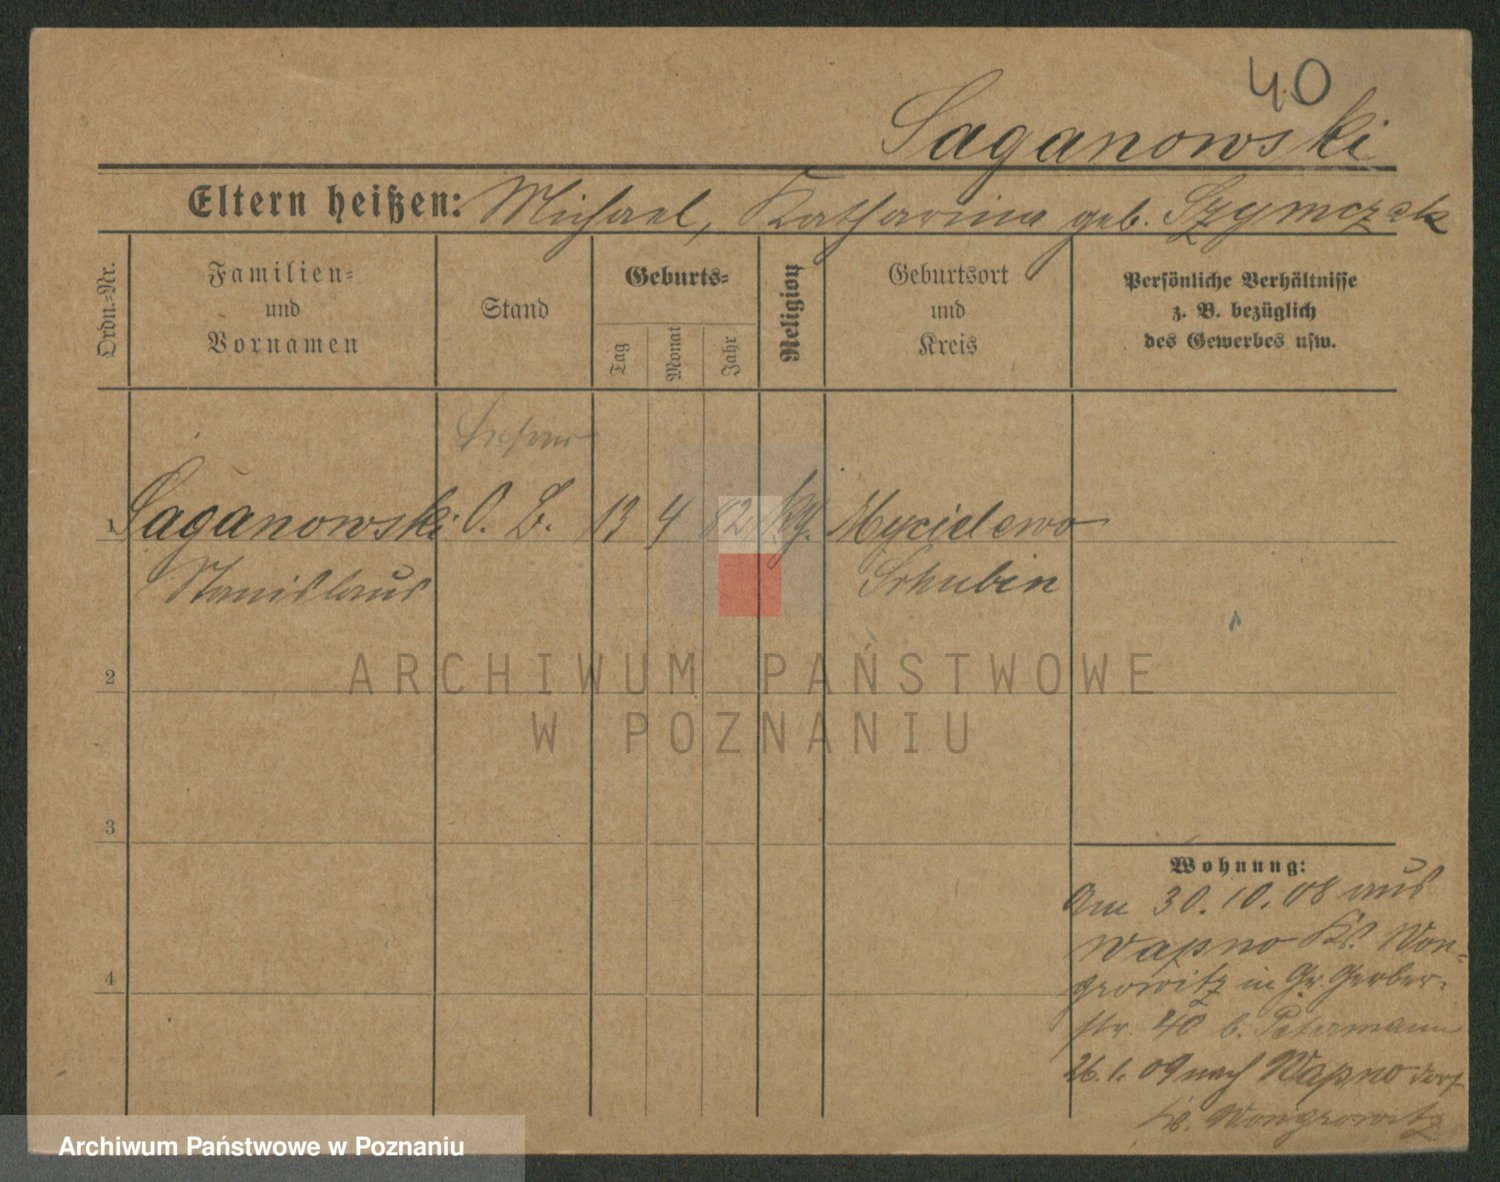 40
Saganowski
Eltern heißen: Michael, Katharina geb. Szymczak
Ordn.-Nr.
Familien-
und
Vornamen
Stand
Geburts-
Tag
Monat
Jahr
Religion
Geburtsort
und
Kreis
Persönliche Verhältnisse
z. B. bezüglich
des Gewerbes usw.
1 Saganowski O. B. 13 4 82 kg. Mycielewo
Stanislaus Schubin
2
3
4
Wohnung:
Am 30.10.08 aus
Wapno Kr. Won-
growitz in Gr. Gerber-
str. 40 b. Petermann
26.1.09 nach Wapno Dorf
Kr. Wongrowitz
ARCHIWUM PAŃSTWOWE
W POZNANIU
Archiwum Państwowe w Poznaniu